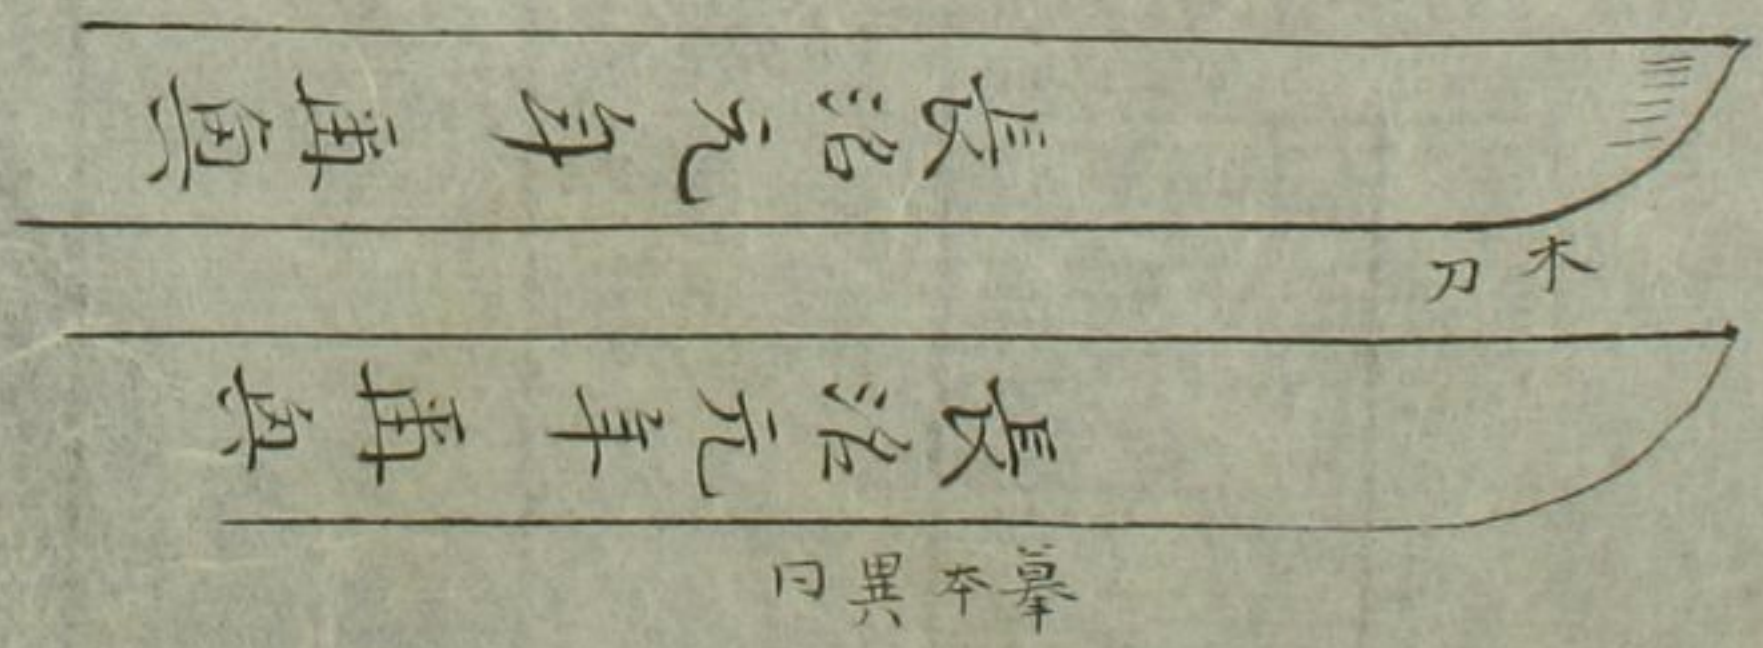 長治元年再興
木刀
長治元年再興
摹本異同